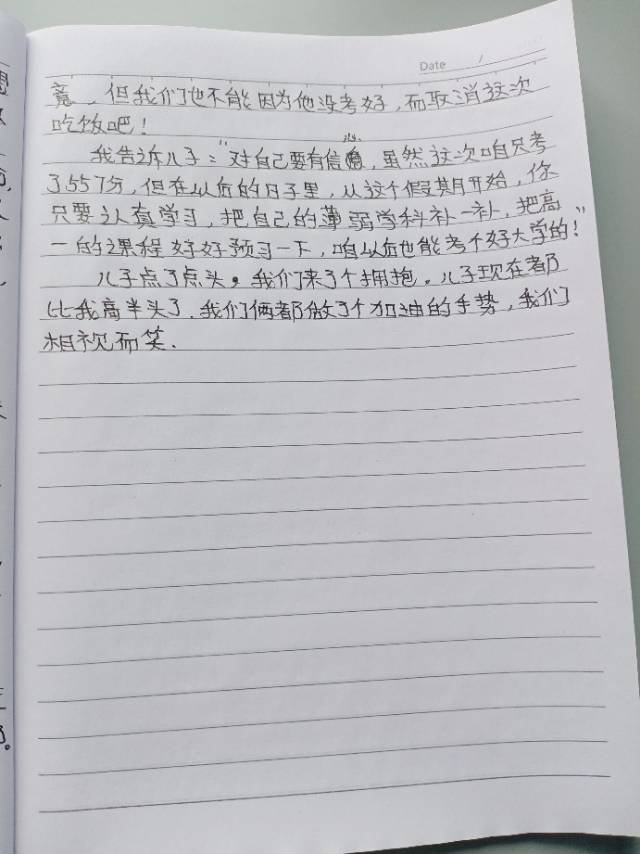 Date /
竟，但我们也不能因为他没考好，而取消这次
吃饭吧！
我告诉儿子："对自己要有信心，虽然这次咱只考
了557分，但在以后的日子里，从这个假期开始，你
只要认真学习，把自己的薄弱学科补一补，把高
一的课程好好预习一下，咱以后也能考个好大学的！"
儿子点了点头。我们来了个拥抱。儿子现在都
比我高半头了．我们俩都做了个加油的手势，我们
相视而笑．